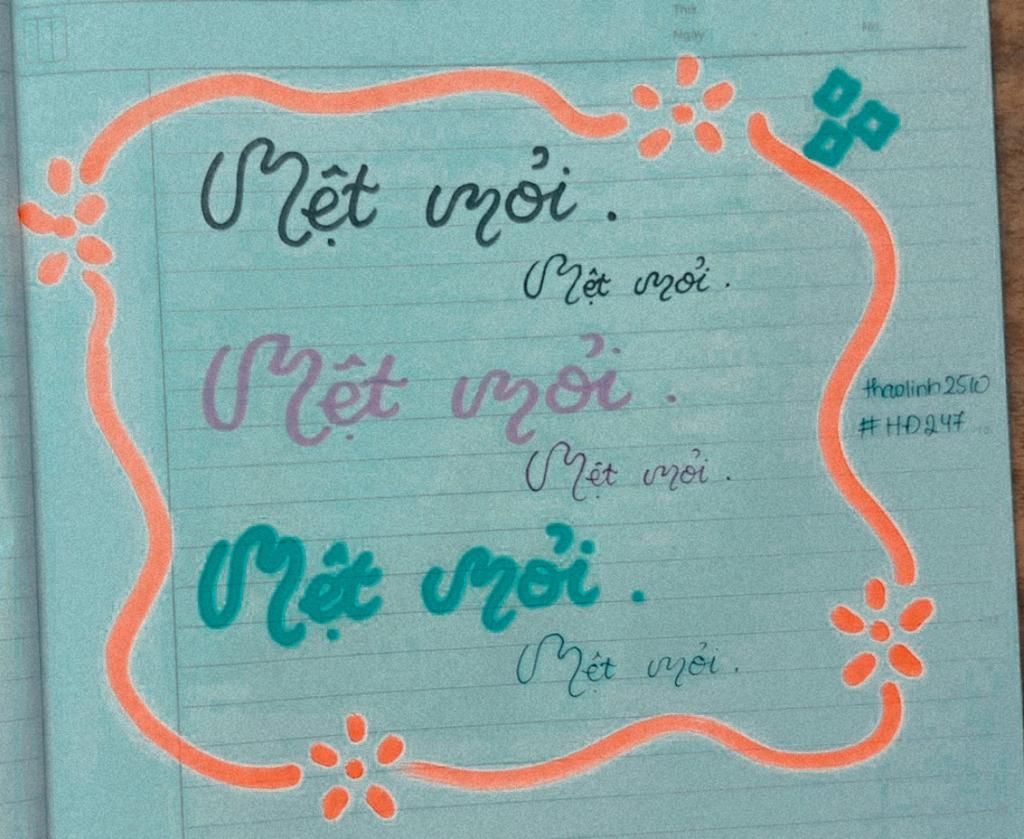 Thứ
Ngày
No.
Mệt mỏi.
Mệt mỏi.
Mệt mỏi.
thaolinh2510
#HĐ247
Mệt mỏi.
Mệt mỏi.
Mệt mỏi.